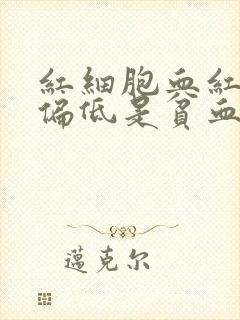 紅細胞血紅
偏低是貧血
邁克尔